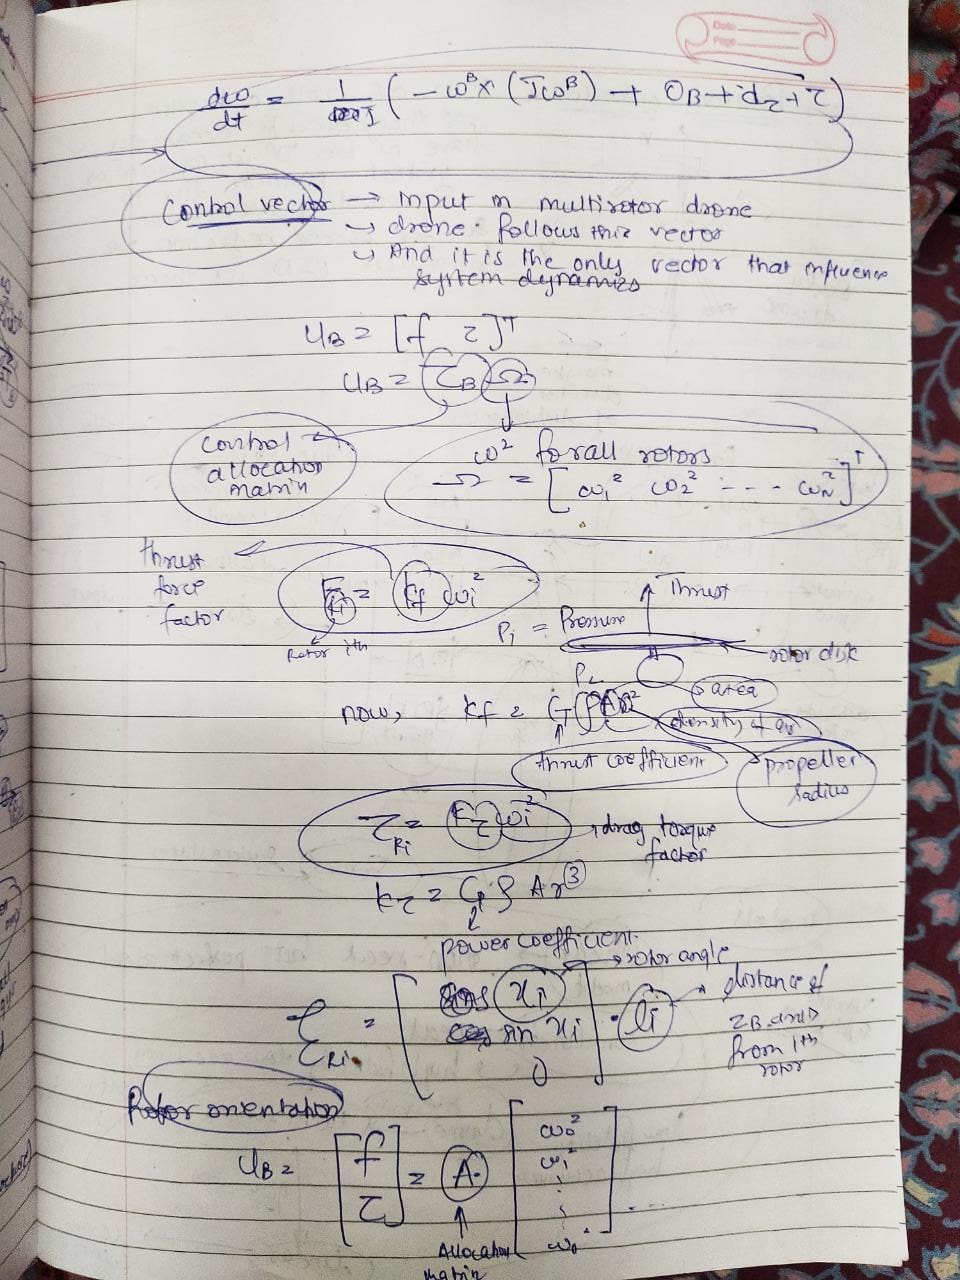 Date
Page
dω/dt = 1/J ( - ω^B × (Jω^B) + O_B + d_τ + τ )
Control vector → Input in multirotor drone
→ drone follows this vector
→ And it is the only vector that influence
system dynamics
U_B = [f τ]^T
U_B = τ_B Ω
control
allocation
matrix
ω² for all rotors
Ω = [ω₁² ω₂² --- ω_N²]^T
thrust
force
factor
F_Ri = kf ωi²
Rotor ith
Thrust
Pi = Pressure
rotor disk
P₂
area
now, kf = C_T ρ A r²
density of air
thrust coefficient
propeller
radius
τ_Ri = k_τ ωi²
drag torque
factor
k_τ = C_p ρ A r³
power coefficient
→ rotor angle
ξ_Ri = [cos xi
sin xi
0] · li
distance of
Z_B axis
from ith
rotor
Rotor orientation
U_B = [f
τ] = A [ω₀²
ω₁²
⋮
ω₀²] ....
Allocation
matrix